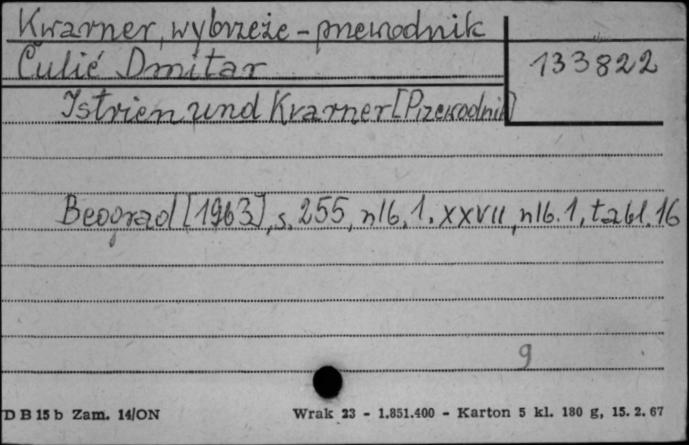 Kwarner, wybrzeże - przewodnik
Čulić Dmitar
133822
Istrien und Kvarner [Przewodnik]
Beograd [1963], s. 255, nlb. 1. XXVII, nlb. 1, tabl. 16
9
D B 15 b Zam. 14/ON
Wrak 23 - 1.851.400 - Karton 5 kl. 180 g, 15. 2. 67